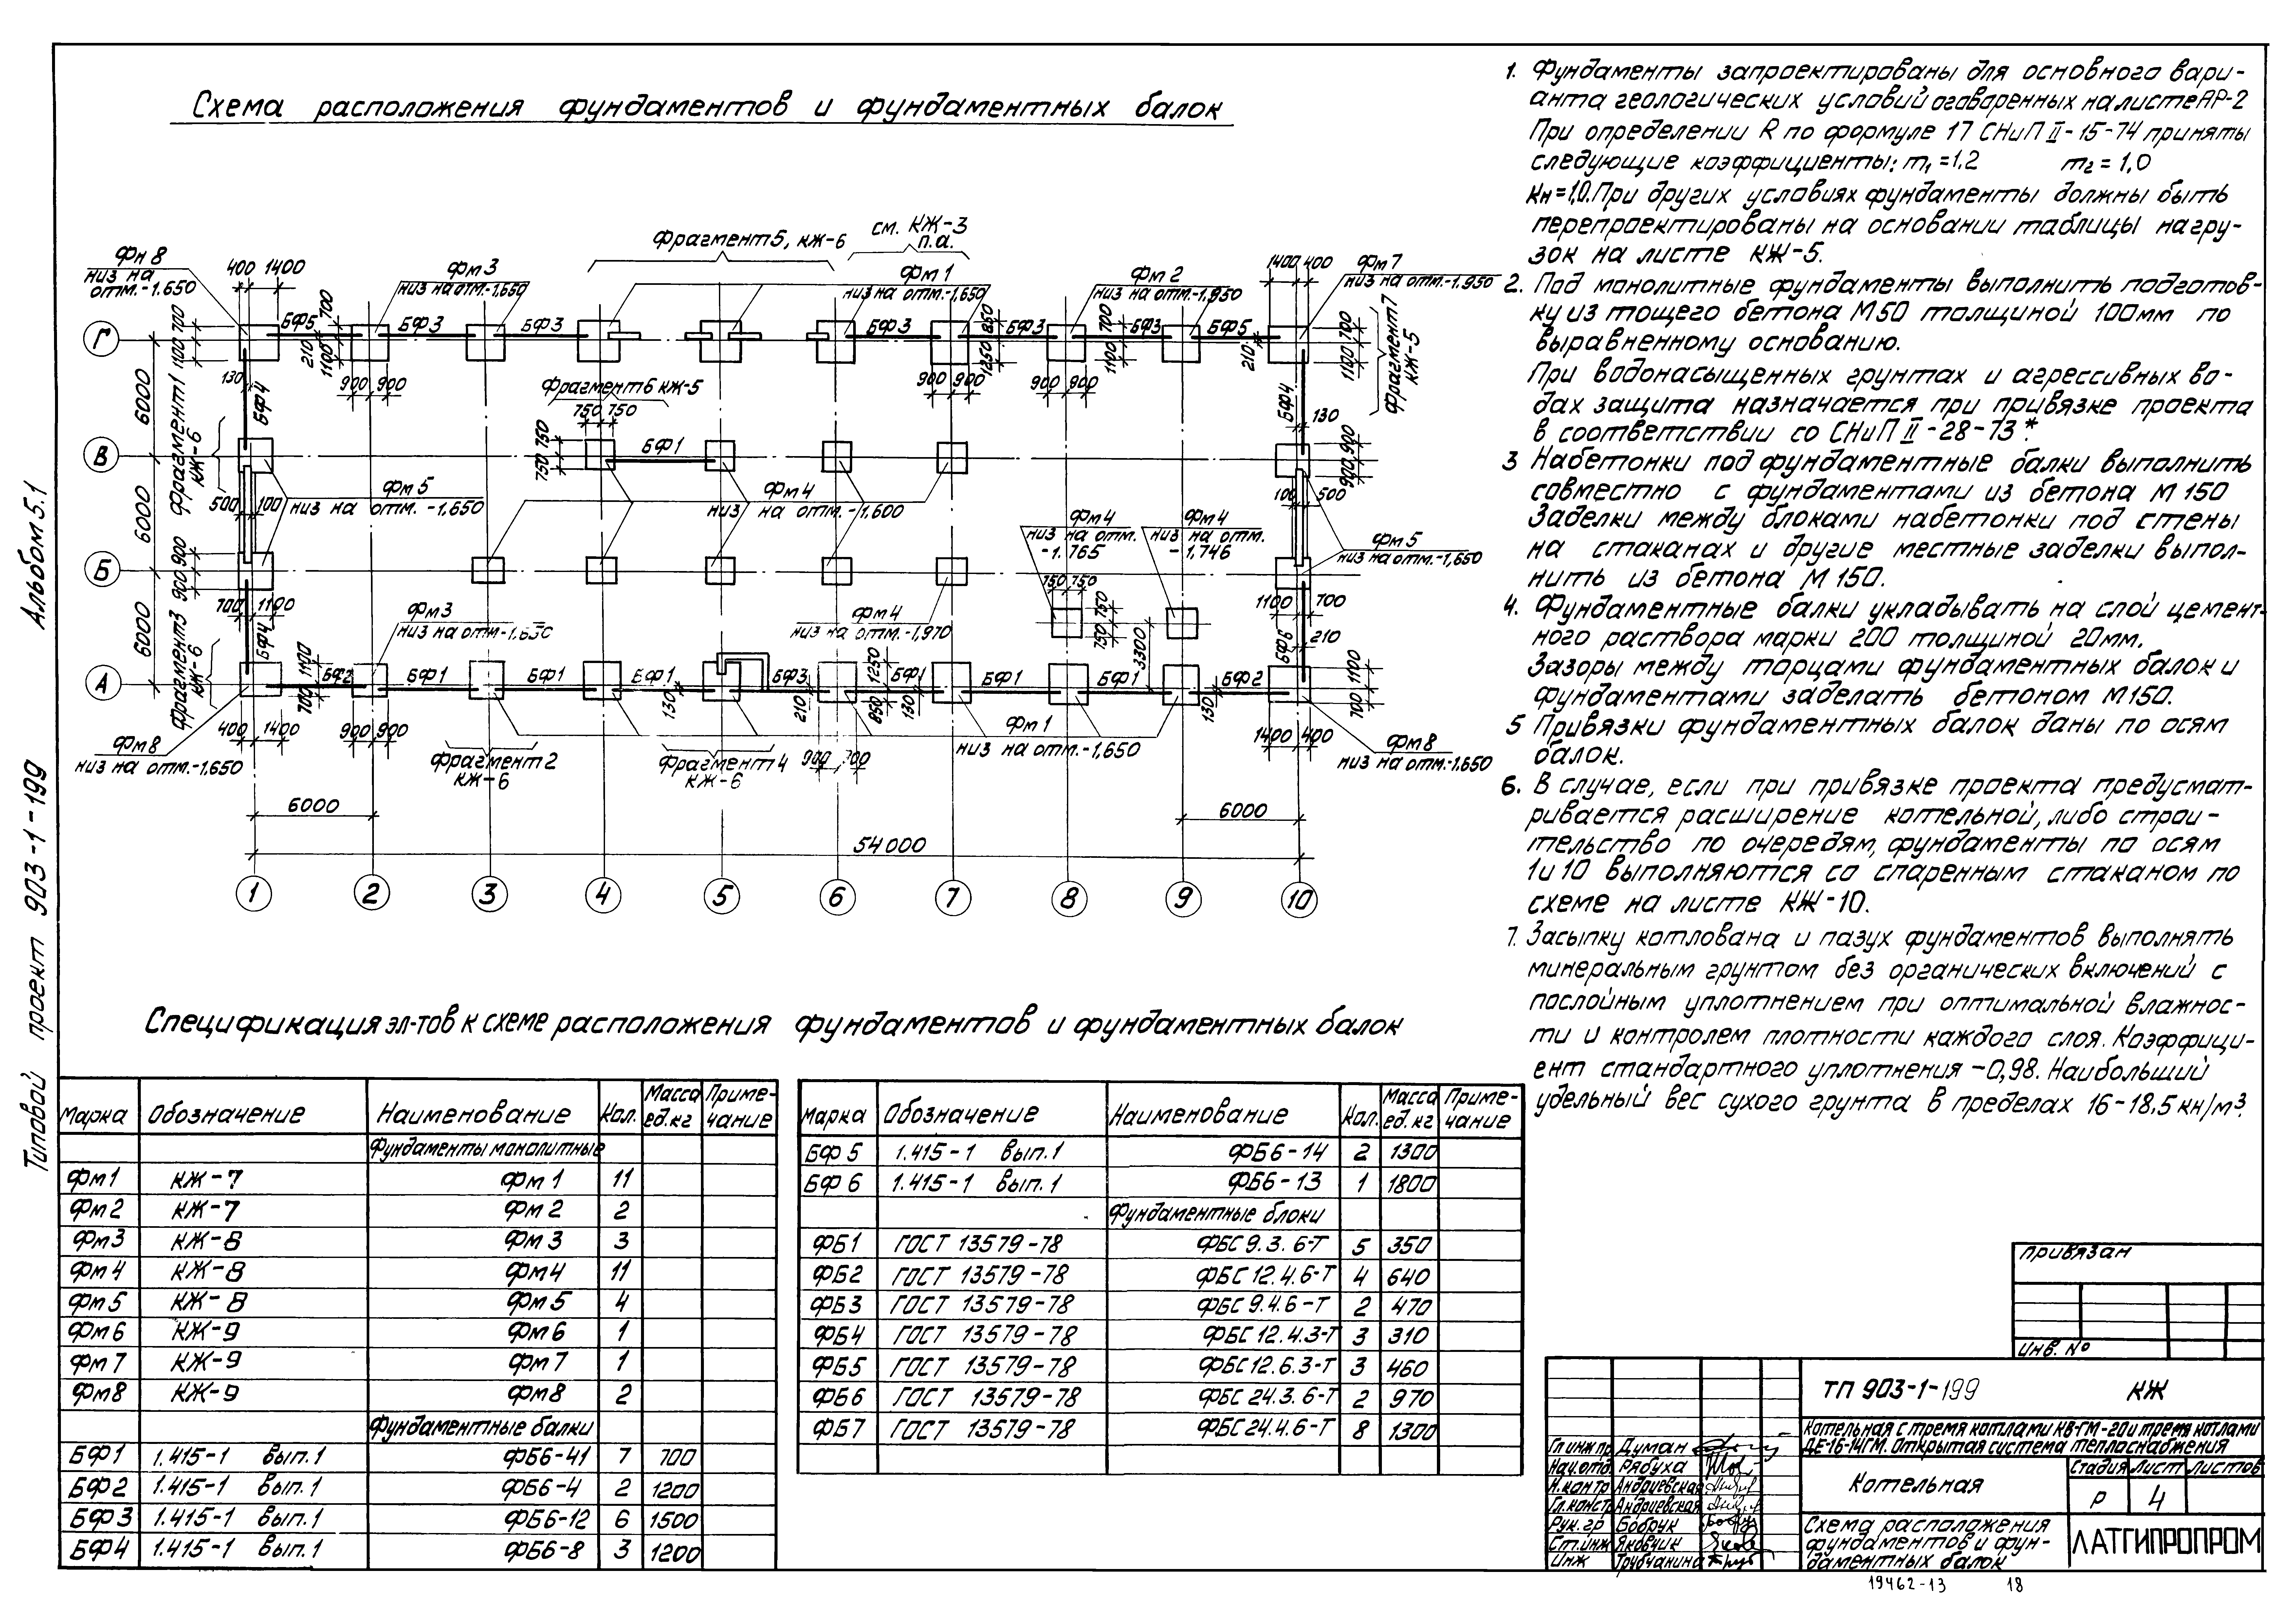 Альбом 5.1
Типовой проект 903-1-199
Схема расположения фундаментов и фундаментных балок
Фрагмент 5, КЖ-6
см. КЖ-3
п.а.
Фн 8
низ на
отм.-1.650
400 1400
Фм 3
низ на отм.-1,650
Фм 1
низ на отм.-1,650
Фм 2
низ на отм.-1,950
1400 400
Фм 7
низ на отм.-1.950
Г
БФ5 БФ3 БФ3 БФ3 БФ3 БФ3 БФ5
1100 700
210
1100 700
1250 850
1100 700
210
1100 700
Фрагмент 7
КЖ-5
130
900 900
900 900
900 900
6000
БФ4
Фрагмент 1
КЖ-6
Фрагмент 6 КЖ-5
750 750
750 750
БФ1
БФ4
130
В
900 900
Фм 5
низ на отм. -1,650
500 100
Фм 4
низ на отм. -1,600
100 500
6000
Фм 4
низ на отм.
-1.765
Фм 4
низ на отм.
-1,746
Фм 5
низ на отм.-1,650
Б
900 900
750 750
750 750
700 1100
1100 700
Фм 3
низ на отм.-1,650
Фм 4
низ на отм.-1,970
3300
6000
БФ4
БФ6
210
Фрагмент 3
КЖ-6
А
БФ2 БФ1 БФ1 БФ1 БФ3 БФ1 БФ1 БФ1 БФ2
700 1100
130
210
850 1250
130
130
700 1100
400 1400
900 900
Фм 8
низ на отм.-1,650
Фрагмент 2
КЖ-6
Фрагмент 4
КЖ-6
Фм 1
низ на отм.-1,650
1400 400
Фм 8
низ на отм.-1.650
6000
6000
54000
1 2 3 4 5 6 7 8 9 10
1. Фундаменты запроектированы для основного вари-
анта геологических условий оговоренных на листе АР-2
При определении R по формуле 17 СНиП II-15-74 приняты
следующие коэффициенты: m₁=1.2 m₂=1,0
Кн=1,0. При других условиях фундаменты должны быть
перепроектированы на основании таблицы нагру-
зок на листе КЖ-5.
2. Под монолитные фундаменты выполнить подготов-
ку из тощего бетона М50 толщиной 100мм по
выравненному основанию.
При водонасыщенных грунтах и агрессивных во-
дах защита назначается при привязке проекта
в соответствии со СНиП II-28-73*.
3 Набетонки под фундаментные балки выполнить
совместно с фундаментами из бетона М 150
Заделки между блоками набетонки под стены
на стаканах и другие местные заделки выпол-
нить из бетона М 150.
4. Фундаментные балки укладывать на слой цемент-
ного раствора марки 200 толщиной 20мм.
Зазоры между торцами фундаментных балок и
фундаментами заделать бетоном М150.
5 Привязки фундаментных балок даны по осям
балок.
6. В случае, если при привязке проекта предусмат-
ривается расширение котельной, либо строи-
тельство по очередям, фундаменты по осям
1 и 10 выполняются со спаренным стаканом по
схеме на листе КЖ-10.
7. Засыпку котлована и пазух фундаментов выполнять
минеральным грунтом без органических включений с
послойным уплотнением при оптимальной влажнос-
ти и контролем плотности каждого слоя. Коэффици-
ент стандартного уплотнения -0,98. Наибольший
удельный вес сухого грунта в пределах 16-18,5 кн/м³.
Спецификация эл-тов к схеме расположения фундаментов и фундаментных балок
Марка Обозначение Наименование Кол. Масса ед.кг Приме-чание
Фундаменты монолитные
Фм1 КЖ-7 Фм 1 11
Фм2 КЖ-7 Фм 2 2
Фм3 КЖ-8 Фм 3 3
Фм4 КЖ-8 Фм4 11
Фм5 КЖ-8 Фм 5 4
Фм6 КЖ-9 Фм6 1
Фм7 КЖ-9 Фм 7 1
Фм8 КЖ-9 Фм8 2
Фундаментные балки
БФ1 1.415-1 вып.1 ФБ6-41 7 700
БФ2 1.415-1 вып.1 ФБ6-4 2 1200
БФ3 1.415-1 вып.1 ФБ6-12 6 1500
БФ4 1.415-1 вып.1 ФБ6-8 3 1200
Марка Обозначение Наименование Кол. Масса ед.кг Приме-чание
БФ5 1.415-1 вып.1 ФБ6-14 2 1300
БФ6 1.415-1 вып.1 ФБ6-13 1 1800
Фундаментные блоки
ФБ1 ГОСТ 13579-78 ФБС 9.3.6-Т 5 350
ФБ2 ГОСТ 13579-78 ФБС 12.4.6-Т 4 640
ФБ3 ГОСТ 13579-78 ФБС 9.4.6-Т 2 470
ФБ4 ГОСТ 13579-78 ФБС 12.4.3-Т 3 310
ФБ5 ГОСТ 13579-78 ФБС 12.6.3-Т 3 460
ФБ6 ГОСТ 13579-78 ФБС 24.3.6-Т 2 970
ФБ7 ГОСТ 13579-78 ФБС 24.4.6-Т 8 1300
Привязан
Инв. №
ТП 903-1-199 КЖ
Котельная с тремя котлами КВ-ГМ-20 и тремя котлами
ДЕ-16-14ГМ. Открытая система теплоснабжения
Гл инж пр Думан
Нач.отд. Рябуха
Н.контр Андриевская
Гл.конст Андриевская
Рук.гр Бобрук
Ст.инж Яковчик
Инж Трубчанина
Котельная
Стадия Лист Листов
Р 4
Схема расположения
фундаментов и фун-
даментных балок
ЛАТГИПРОПРОМ
19462-13 18